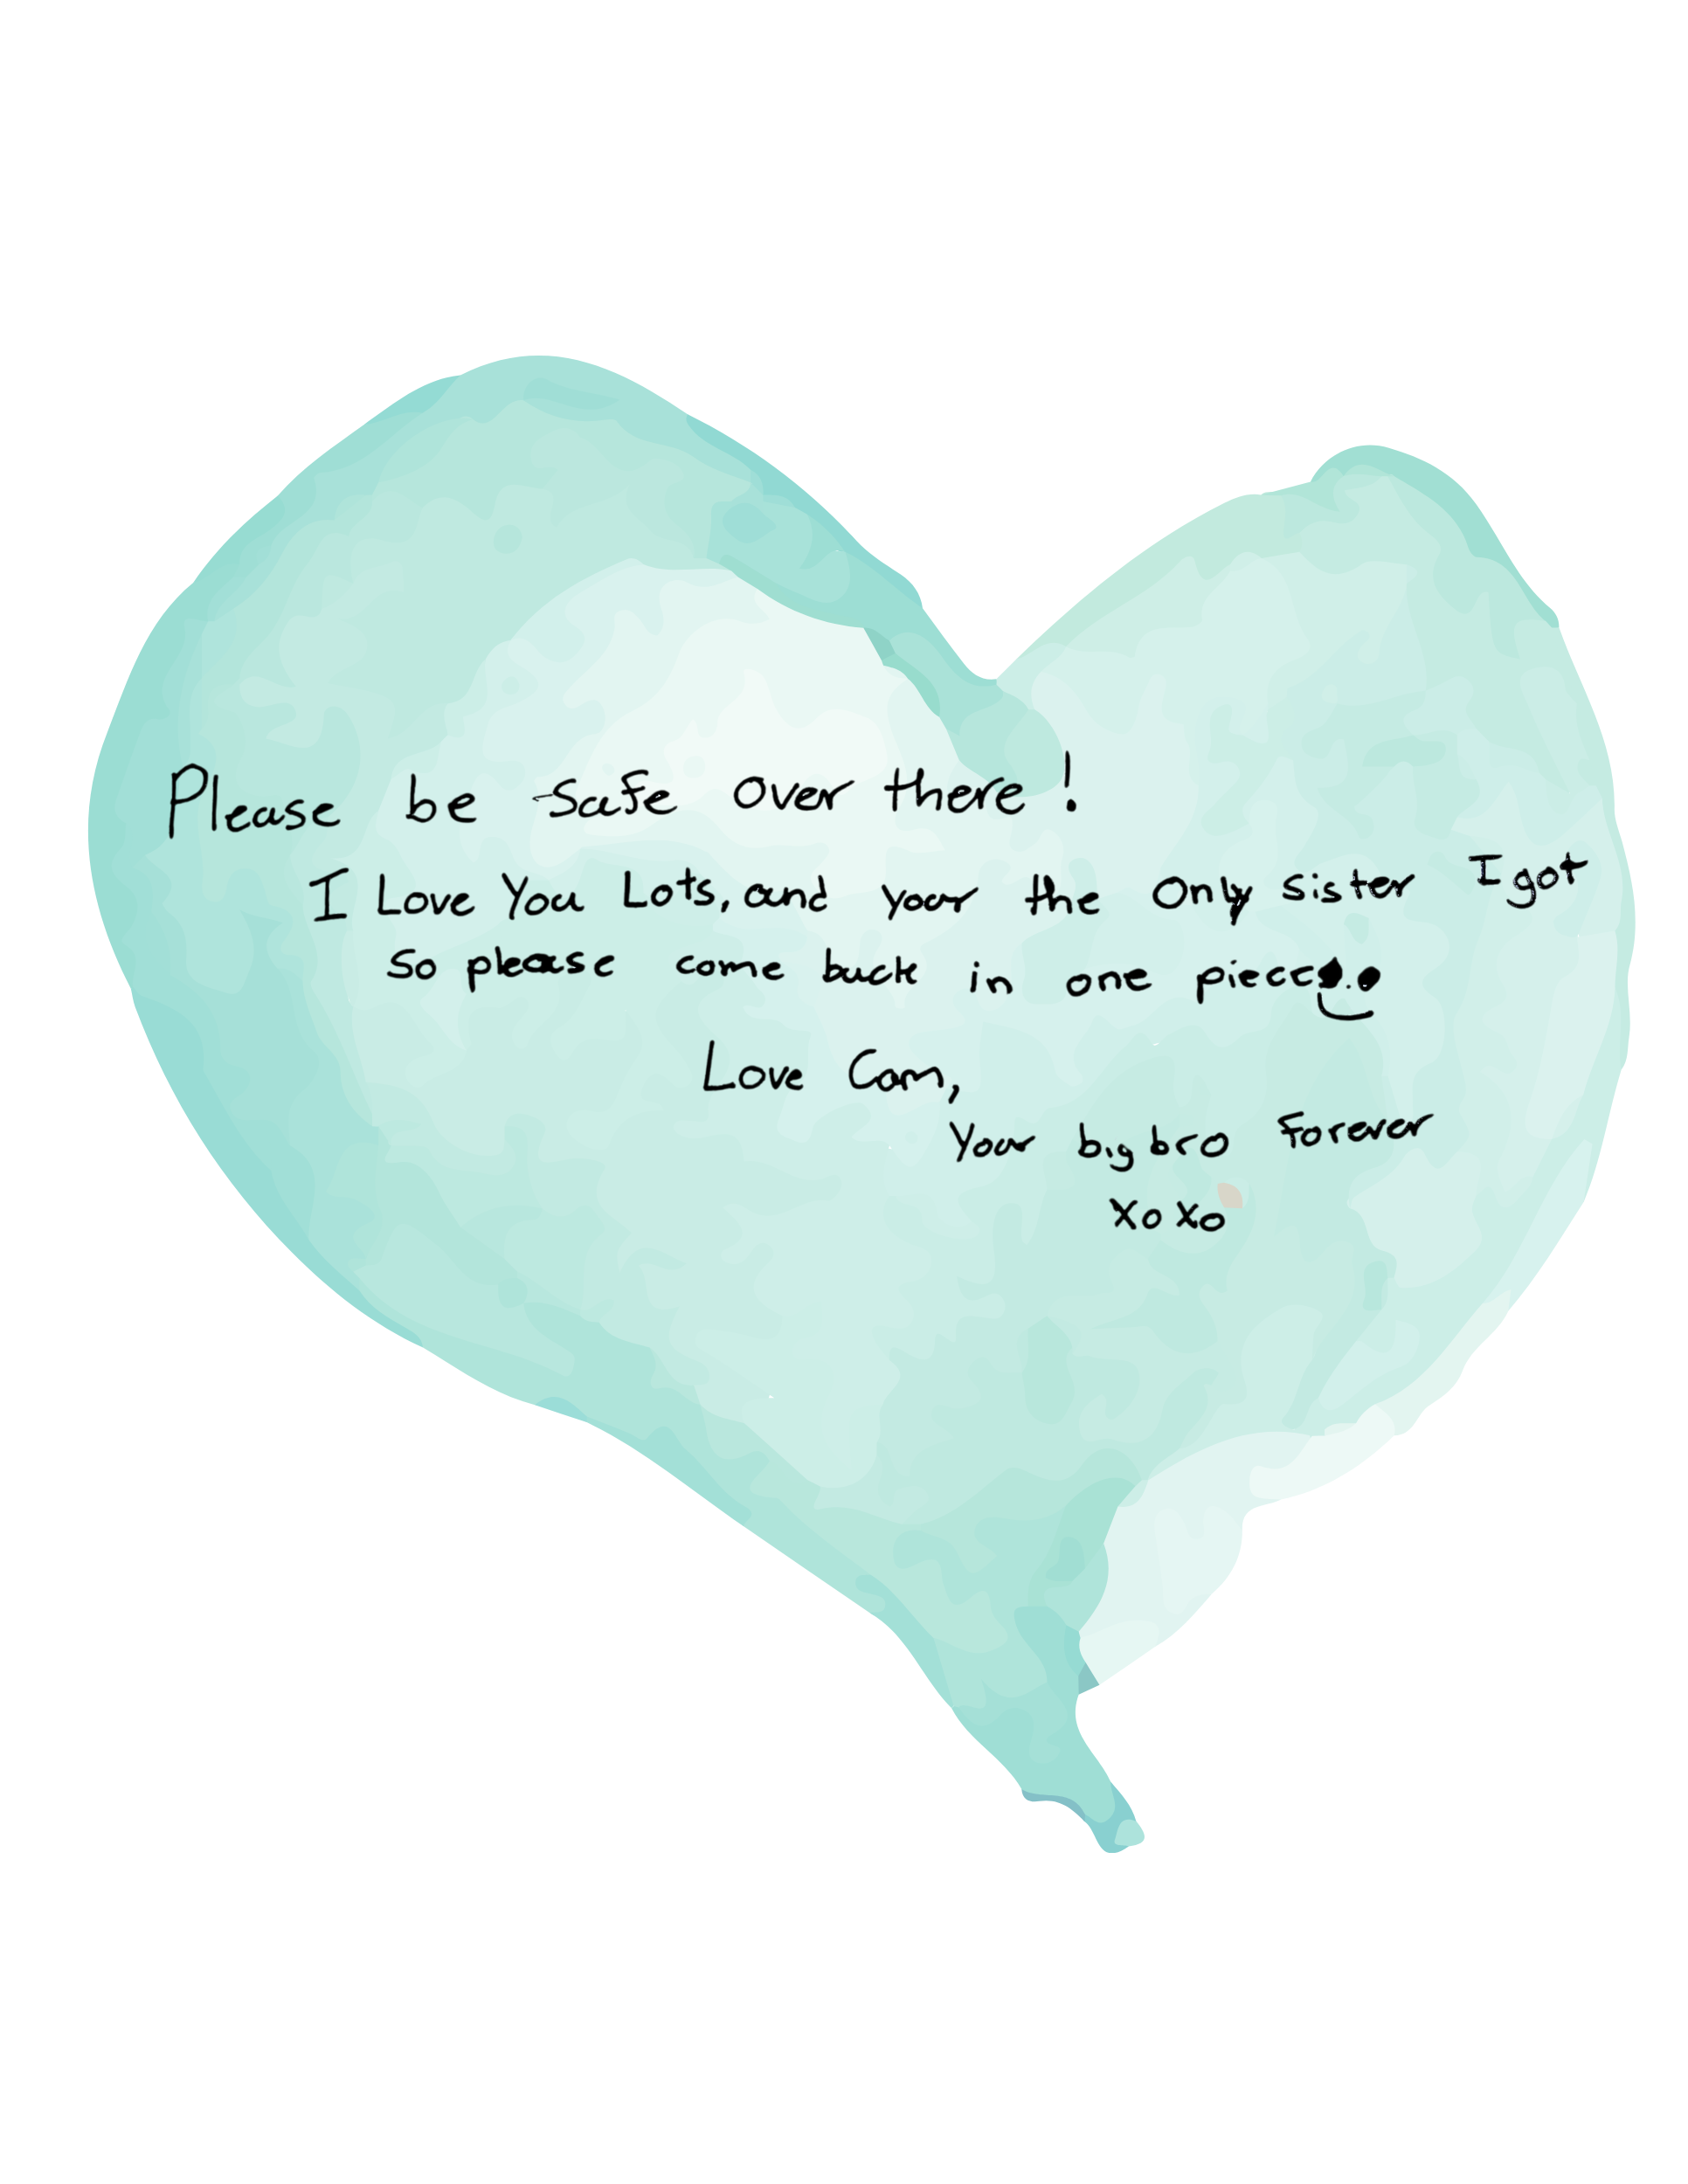 Please be safe over there!
I Love You Lots, and your the only sister I got
So please come back in one piece
Love Cam,
Your big bro forever
xoxo